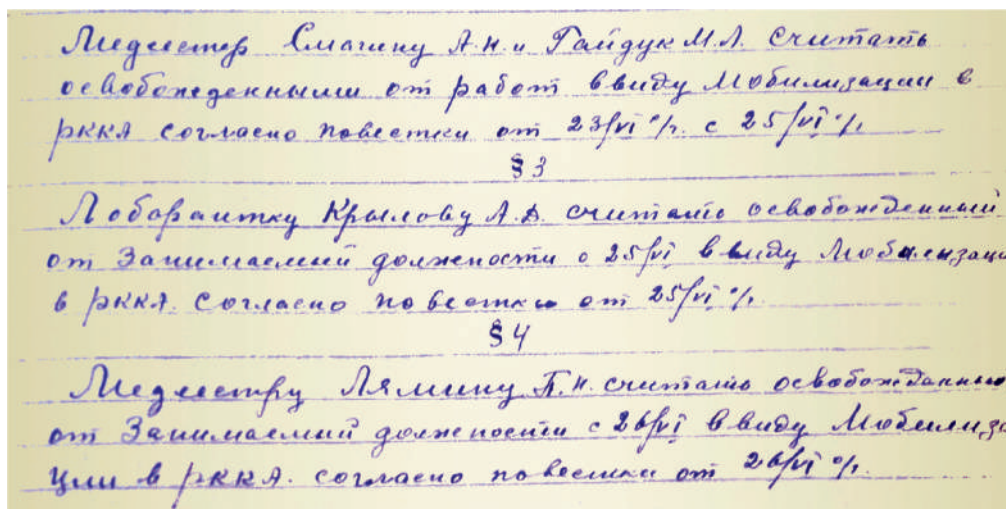 Медсестер Смагину А.Н. и Гайдук М.Л. считать
освобожденными от работ ввиду Мобилизации в
РККА согласно повестки от 23/VI с/г. с 25/VI с/г.
§ 3
Лоборантку Крылову А.Д. считать освобожденный
от Занимаемий должности с 25/VI ввиду Мобилизаци
в РККА. согласно повестки от 25/VI с/г.
§ 4
Медсестру Лямину П.Н. считать освобожданны
от Занимаемий должности с 26/VI ввиду Мобилиза
ции в РККА. согласно повестки от 26/VI с/г.